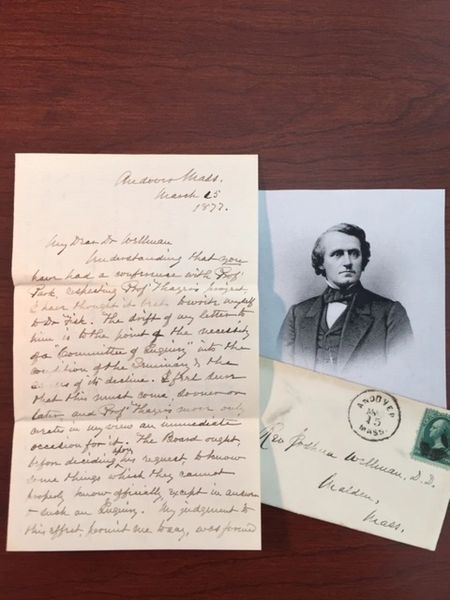 Andover Mass.
March 15
1877.
My Dear Dr Wellman
Understanding that you
have had a conference with Prof
Park respecting Prof Thayer's project,
I have thought it best to write myself
to Dr Fisk. The drift of my letter to
him is to the point of the necessity
of a "Committee of Inquiry" into the
condition of the Seminary & the
of its decline. I feel sure
that this must come, sooner or
later and Prof Thayer's move only
creates in my view an immediate
occasion for it. The Board ought,
before deciding upon his request to know
some things which they cannot
properly know officially except in answer
to such an Inquiry. My judgment to
this effect, permit me to say, was formed
ANDOVER
MAR
15
MASS.
Rev Joshua Wellman, D.D.
Malden,
Mass.